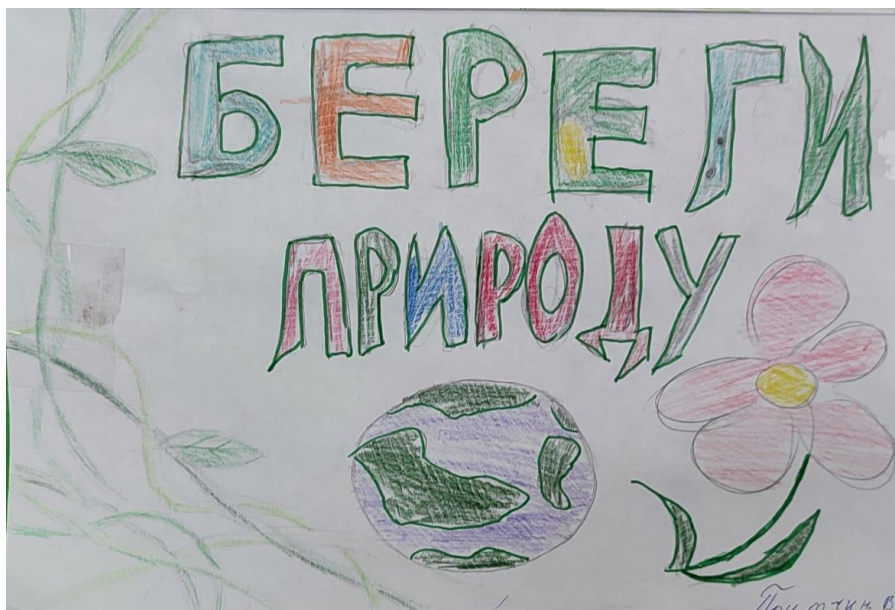 БЕРЕГИ
ПРИРОДУ